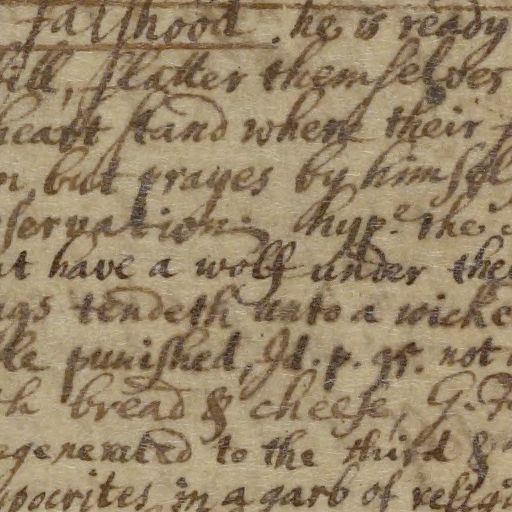 falshood. he is ready
flatter themselves
heart stand where their
but prayes by himself
servation. hyp.e the
have a wolf under the
tendeth unto a wicke
punished, Id. p. 95. not
bread & cheese, G.
egenerated to the third &
ypocrites in a garb of religi